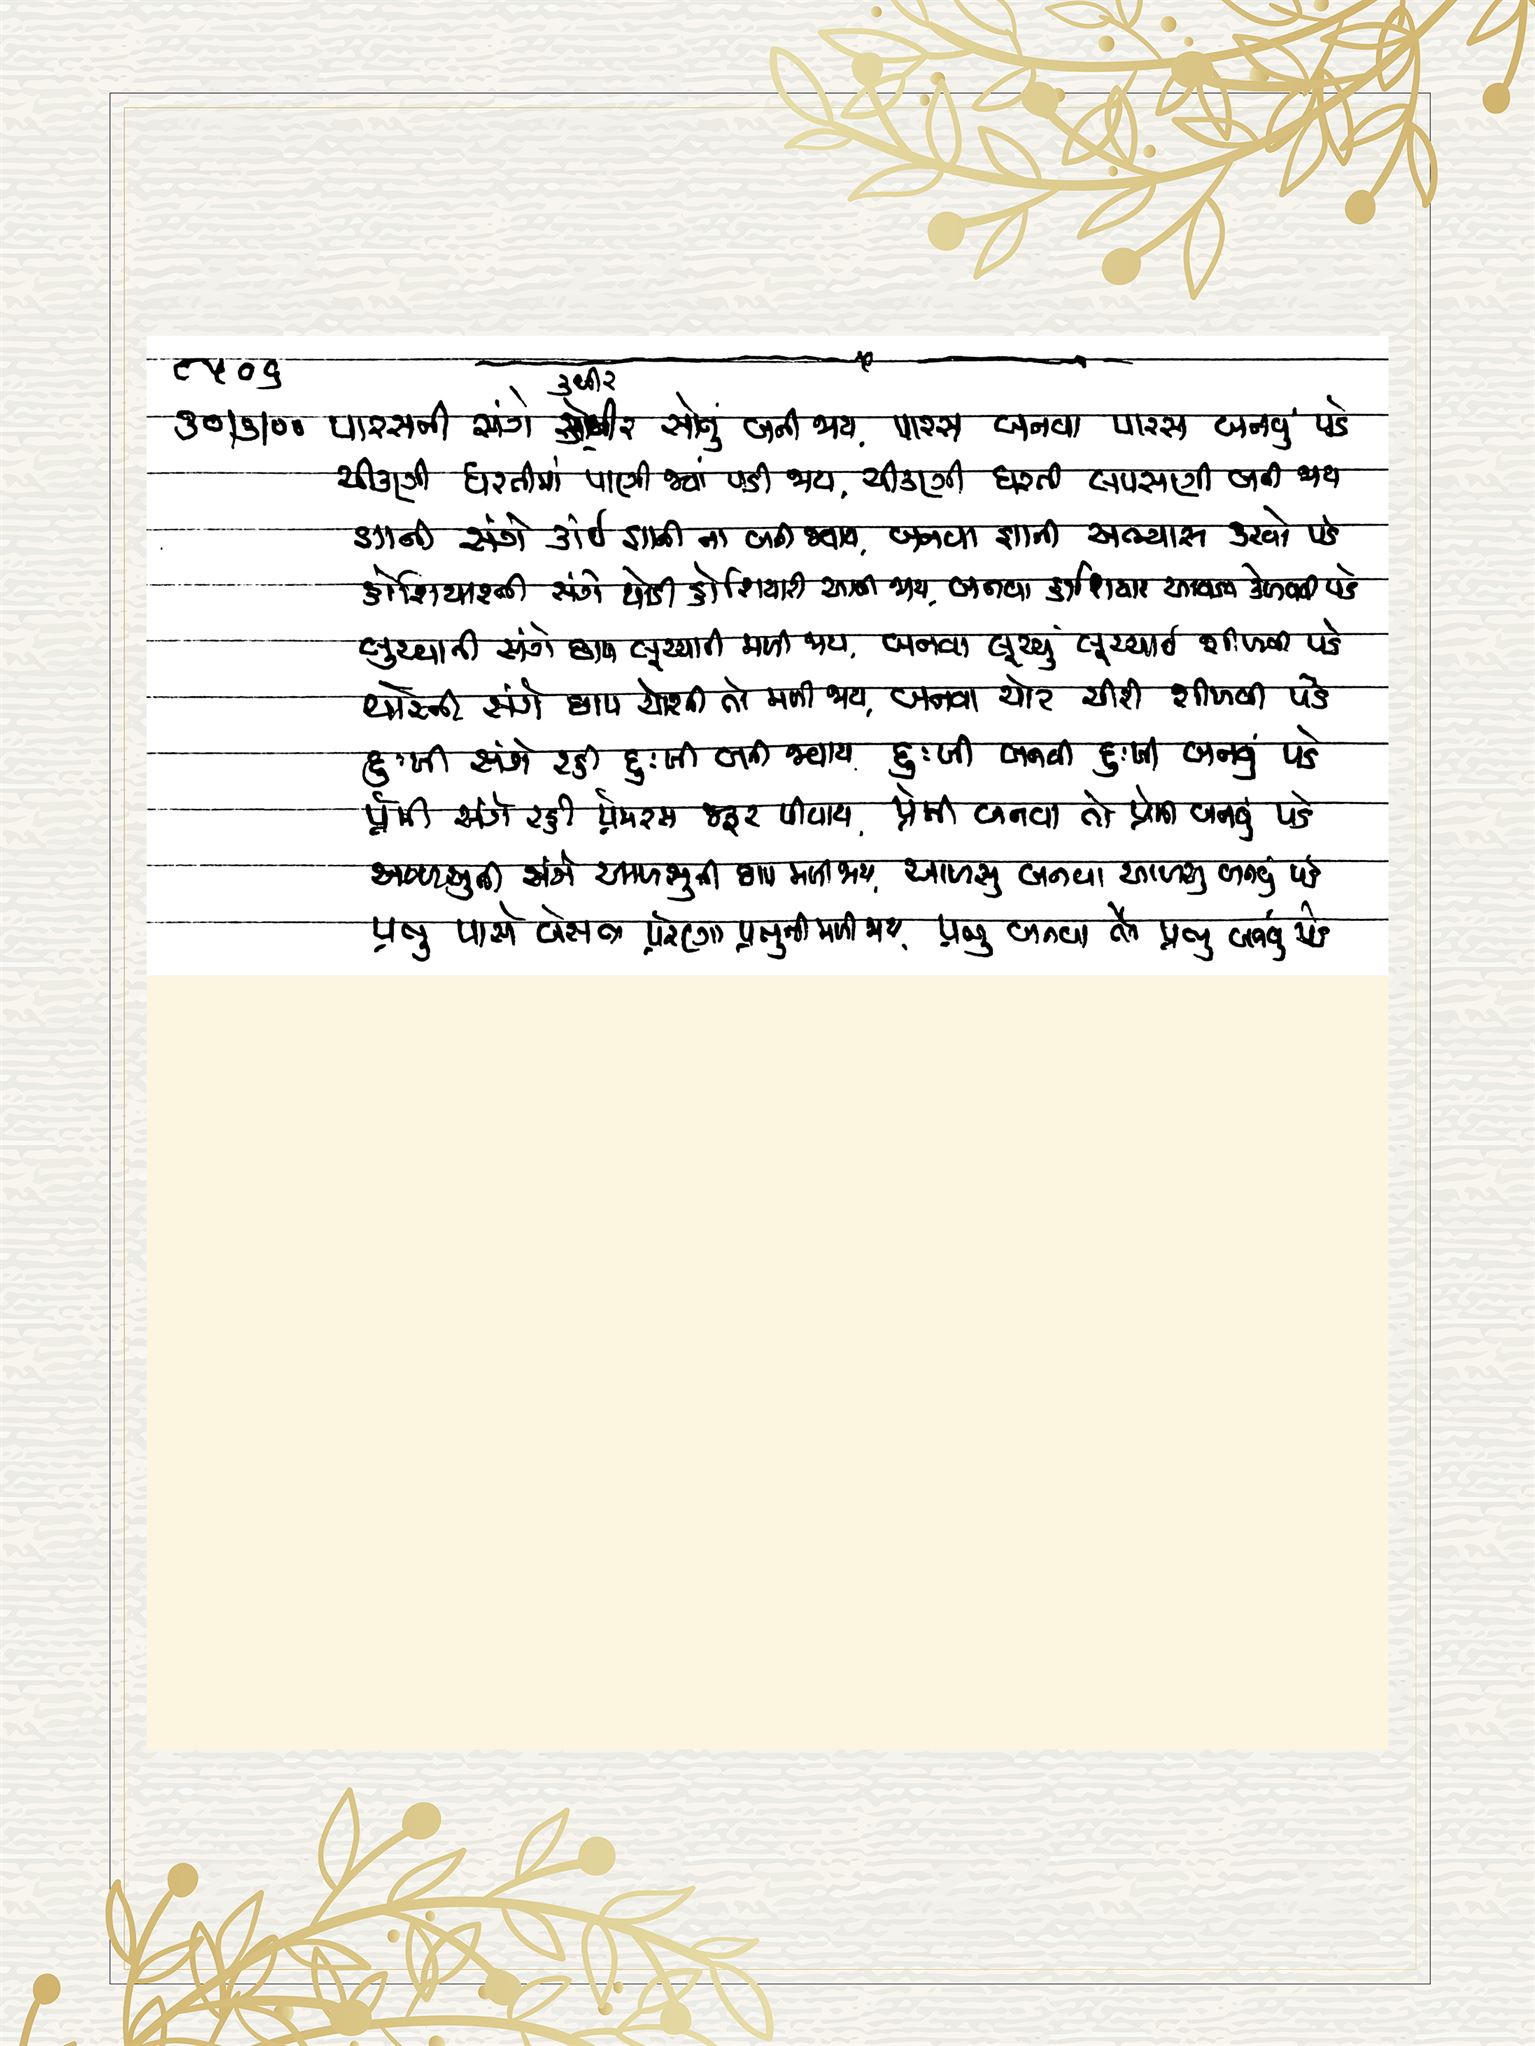 ૮૫૦૬
કથીર
૩૦/૭/૦૦ પારસની સંગે સોનું બની જાય, પારસ બનવા પારસ બનવું પડે
ચીકણી ધરતીમાં પાણી જ્યાં પડી જાય, ચીકણી ધરતી લપસણી બની જાય
જ્ઞાની સંગે કાંઈ જ્ઞાની ના બની જવાય, બનવા જ્ઞાની અભ્યાસ કરવો પડે
હોશિયારની સંગે થોડી હોશિયારી આવી જાય, બનવા હોશિયાર આવડત કેળવવી પડે
લુચ્ચાની સંગે છાપ લૂચ્ચાની મળી જાય, બનવા લૂચ્ચું લૂચ્ચાઈ શીખવી પડે
ચોરની સંગે છાપ ચોરની તો મળી જાય, બનવા ચોર ચોરી શીખવી પડે
દુઃખી સંગે રહી દુઃખી બની જવાય, દુઃખી બનવા દુઃખી બનવું પડે
પ્રેમી સંગે રહી પ્રેમરસ જરૂર પીવાય, પ્રેમી બનવા તો પ્રેમી બનવું પડે
આળસુની સંગે આળસુની છાપ મળી જાય, આળસુ બનવા આળસુ બનવું પડે
પ્રભુ પાસે બેસતા પ્રેરણા પ્રભુની મળી જાય, પ્રભુ બનવા તો પ્રભુ બનવું પડે